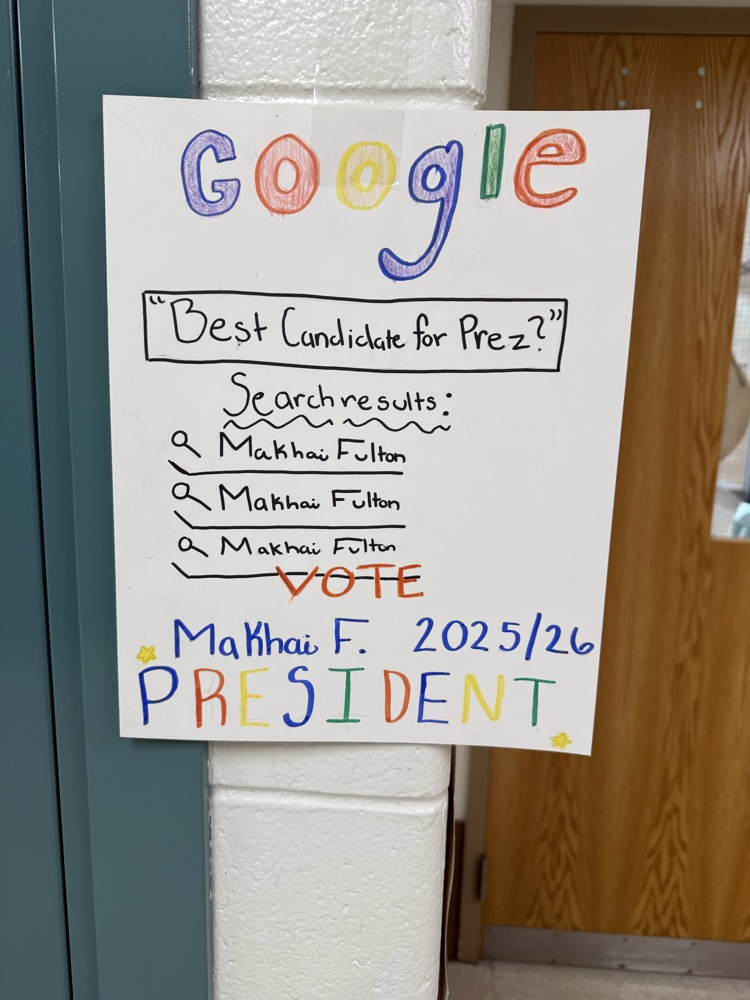 Google
"Best Candidate for Prez?"
Search results:
Makhai Fulton
Makhai Fulton
Makhai Fulton
VOTE
Makhai F. 2025/26
PRESIDENT